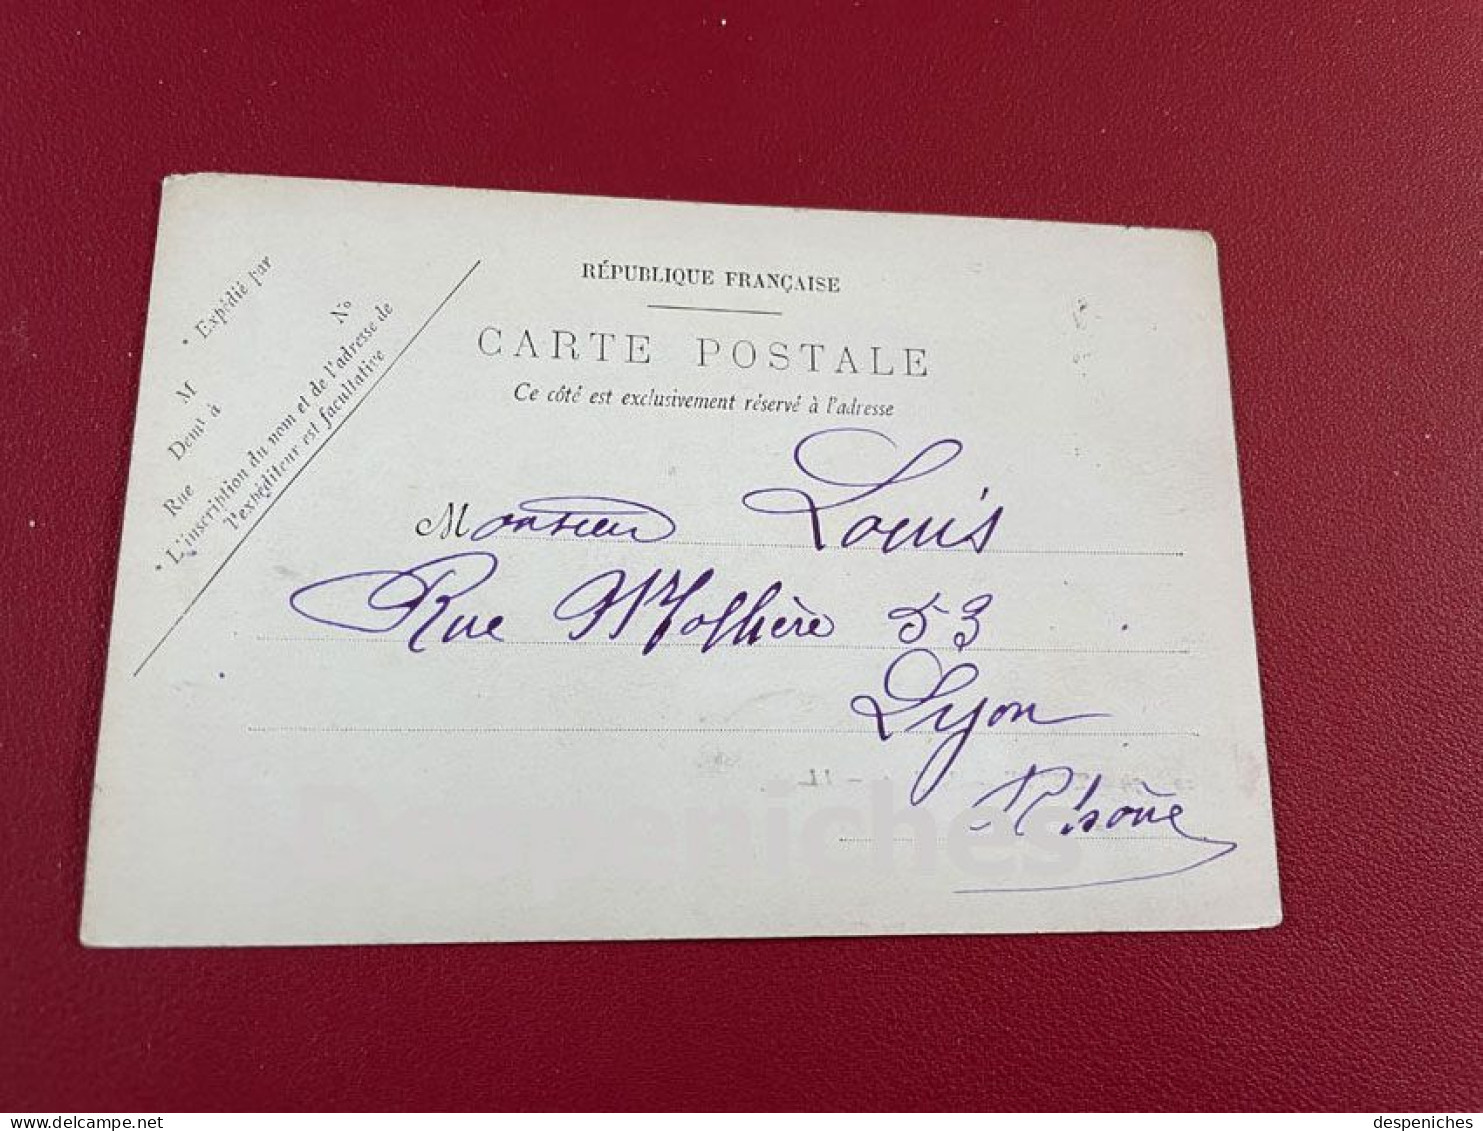 RÉPUBLIQUE FRANÇAISE
CARTE POSTALE
Ce côté est exclusivement réservé à l'adresse
• Expédié par
M
Demt à
Rue
No
• L'inscription du nom et de l'adresse de
l'expéditeur est facultative
Monsieur Louis
Rue Molhière 53
Lyon
Rhône
Despeniches
delcampe.net
despeniches